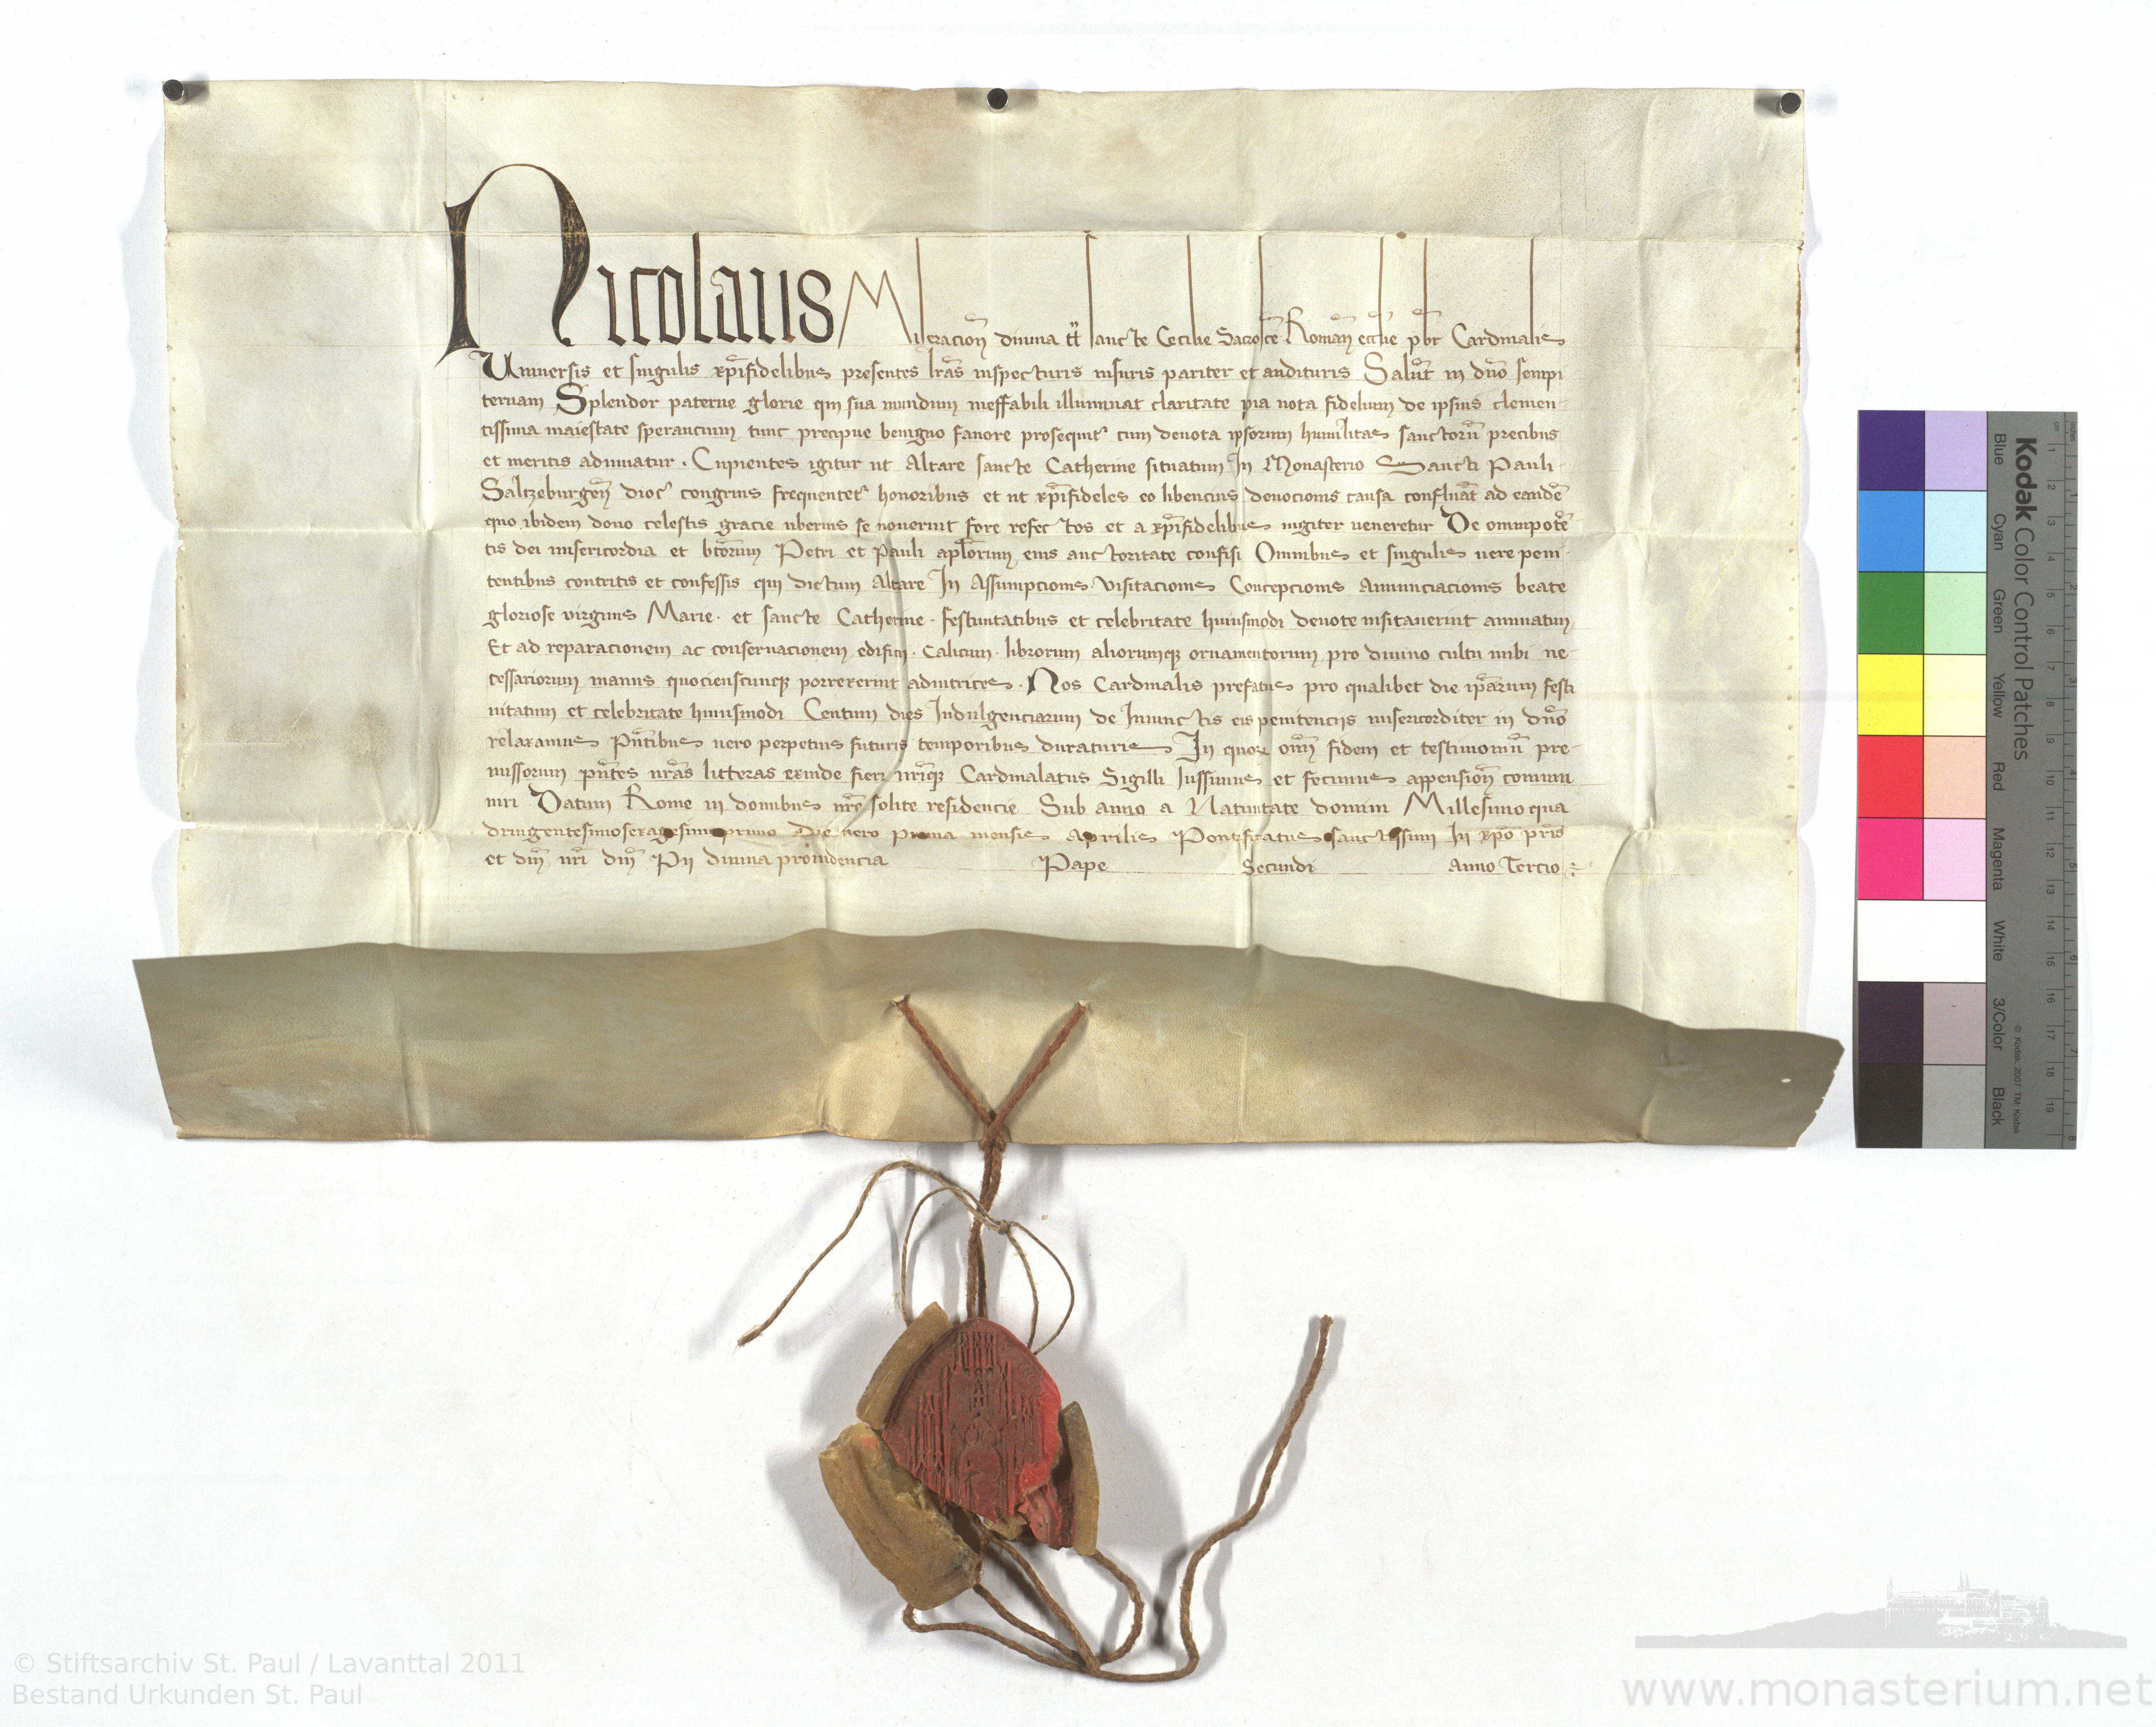 Nicolaus Miseracioñ diuina tt̃ sancte Cecilie Sacroscē Romañ eccľie pb̃r Cardinalis
Uniuersis et singulis xp̃ifidelibus presentes lr̃as inspecturis uisuris pariter et audituris Salut̃ in dño sempi
ternam Splendor paterne glorie qui sua mundum ineffabili illuminat claritate pia uota fidelium de ipsius clemen-
tissima maiestate sperancium tunc precipue benigno fauore prosequitr cum deuota ipsorum humilitas sanctorū precibus
et meritis adiuuatur. Cupientes igitur ut Altare sancte Catherine situatum In Monasterio Sancti Pauli
Saltzeburgeñ dioc̃ congruis frequentetr honoribus et ut xp̃ifideles eo libencius deuocionis causa confluāt ad eandē
quo ibidem dono celestis gracie uberius se nouerint fore refectos et a xp̃ifidelibus iugiter ueneretur De omnipotē
tis dei misericordia et bt̃orum Petri et Pauli apľorum eius auctoritate confisi Omnibus et singulis uere peni-
tentibus contritis et confessis qui dictum Altare In Assumpcionis Visitacionis Concepcionis Annunciacionis beate
gloriose virginis Marie. et sancte Catherine. festiuitatibus et celebritate huiusmodi deuote uisitauerint annuatim
Et ad reparacionem ac conseruacionem edificij. calicum. librorum aliorumqꝫ ornamentorum pro diuino cultu inibi ne-
cessariorum manus quocienscunqꝫ porrexerint adiutrices. Nos Cardinalis prefatus pro qualibet die ip̃arum festi
uitatum et celebritate huiusmodi Centum dies Indulgenciarum de Iniunctis eis penitencijs misericorditer in dño
relaxamus Pñtibus uero perpetuis futuris temporibus duraturis In quoꝝ om̃ fidem et testimoniū pre-
missorum pñtes nr̃as litteras exinde fieri nr̃iqꝫ Cardinalatus Sigilli Iussimus et fecimus appensioñ comuni
niri Datum Rome in domibus nr̃e solite residencie Sub anno a Natiuitate domini Millesimo qua
dringentesimosexagesimoprimo Die uero prima mensis Aprilis Pontificatus sanctissimi In xp̃o pr̃is
et dñi nr̃i dñi Pij diuina prouidencia Pape Secundi Anno Tercio
Kodak Color Control Patches
Blue Cyan Green Yellow Red Magenta White 3/Color Black
© Kodak, 2007 TM: Kodak
cm 1 2 3 4 5 6 7 8 9 10 11 12 13 14 15 16 17 18 19
inches 1 2 3 4 5 6 7 8
© Stiftsarchiv St. Paul / Lavanttal 2011
Bestand Urkunden St. Paul
www.monasterium.net